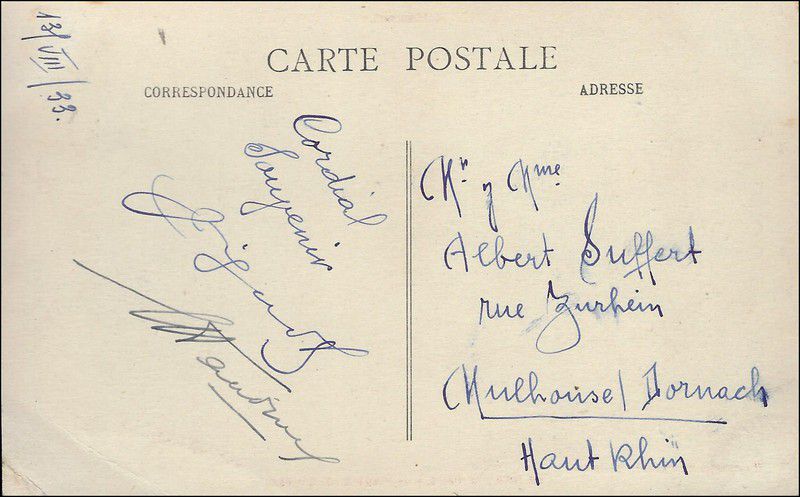 13/VIII/33.
CARTE POSTALE
CORRESPONDANCE
ADRESSE
Cordial
Souvenir
Mr y Mme
Albert Suffert
rue Zurhein
Mulhouse/Dornach
Haut Rhin